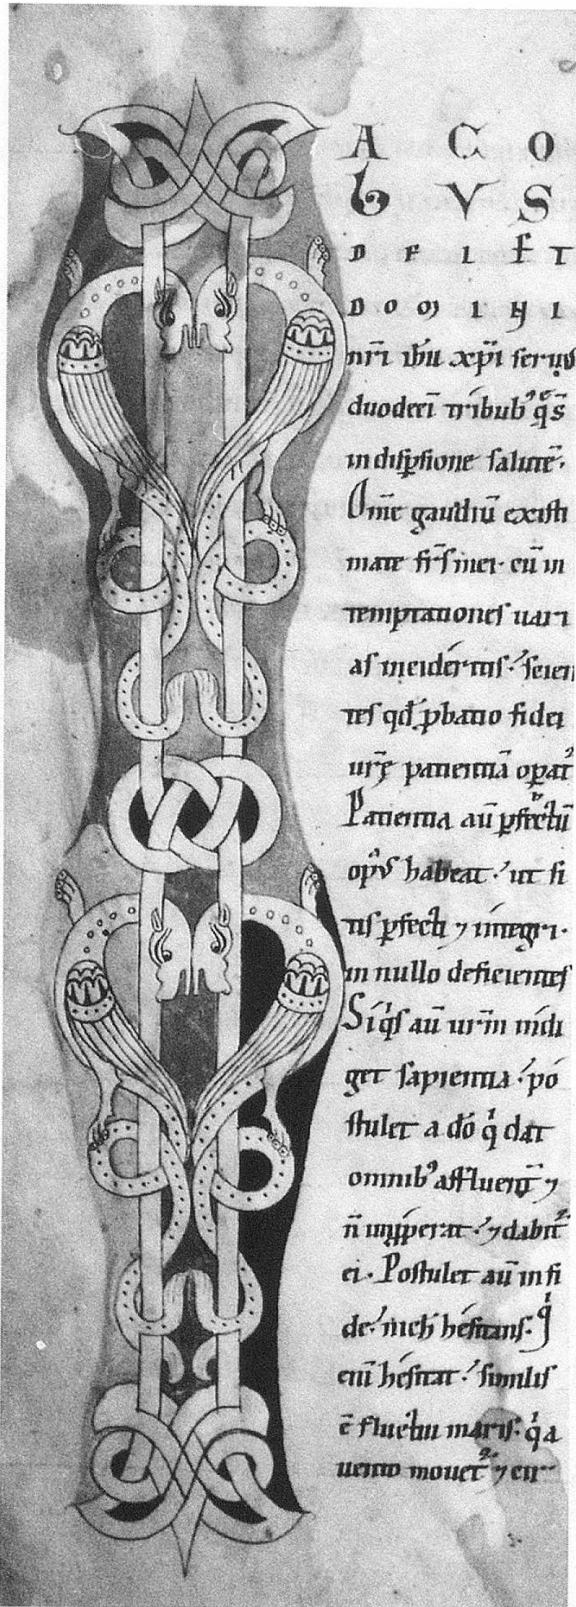 A C O
b V S
D E I E T
D O M I N I
nr̄i ih̄u xp̄i seruus
duodeci̅ tribub᾿ q̄ s̄
in disp̱sione salute̅.
Om̄e gaudiu̅ existi
mate fr̄s mei. cu̅ in
temptationes uari
as incidéritis. scien
tes qd̄ ꝓbatio fidei
ur̄ę patientia̅ oꝑat᾿
Patientia au̅ ꝑfectu̅
op᾿ habeat. ut si
tis ꝑfecti ⁊ integri.
in nullo deficientes
Siq̇s au̅ ur̄m indi
get sapientia. pó
stulet a dō q̇ dat
omnib᾿ affluent̄ ⁊
n̄ inꝓperat. ⁊ dabit᾿
ei. Postulet au̅ in fi
de. nich̄ hésitans. q̇
eni̅ hésitat. similis
ē fluctui maris. q̇ a
uento mouet᾿ ⁊ cir